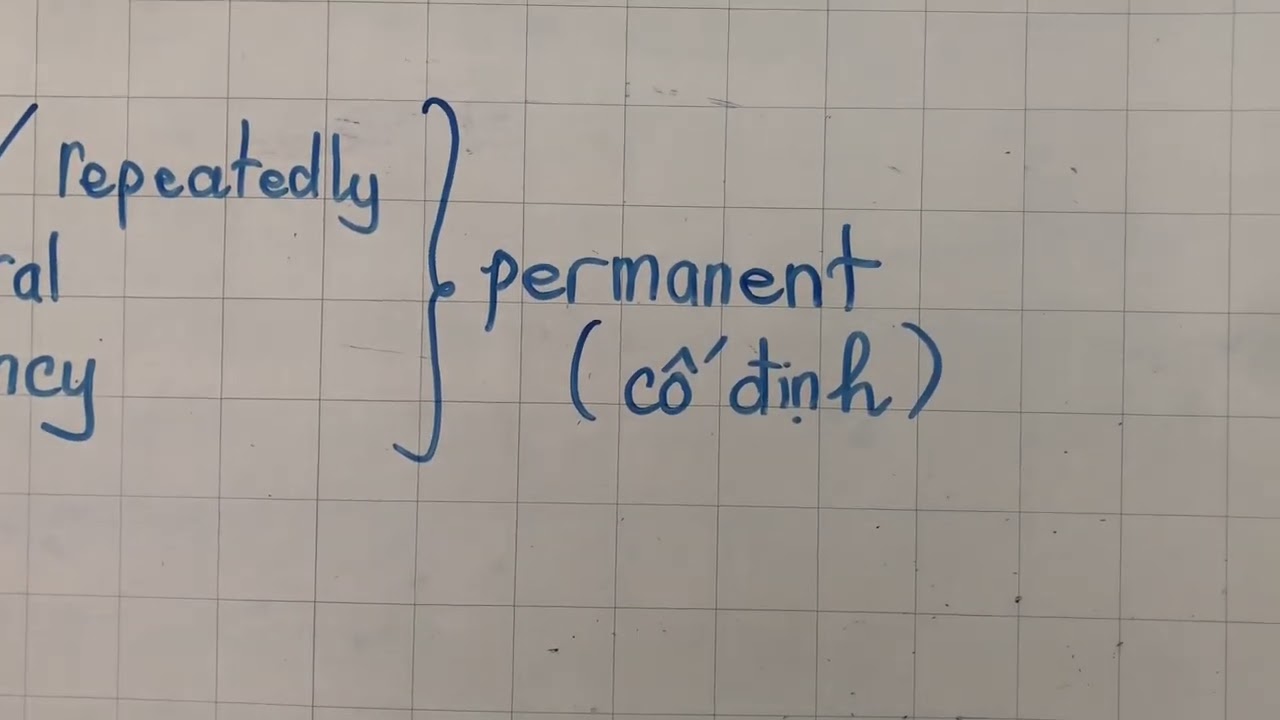 / repeatedly
ral
ncy
permanent
(cố định)